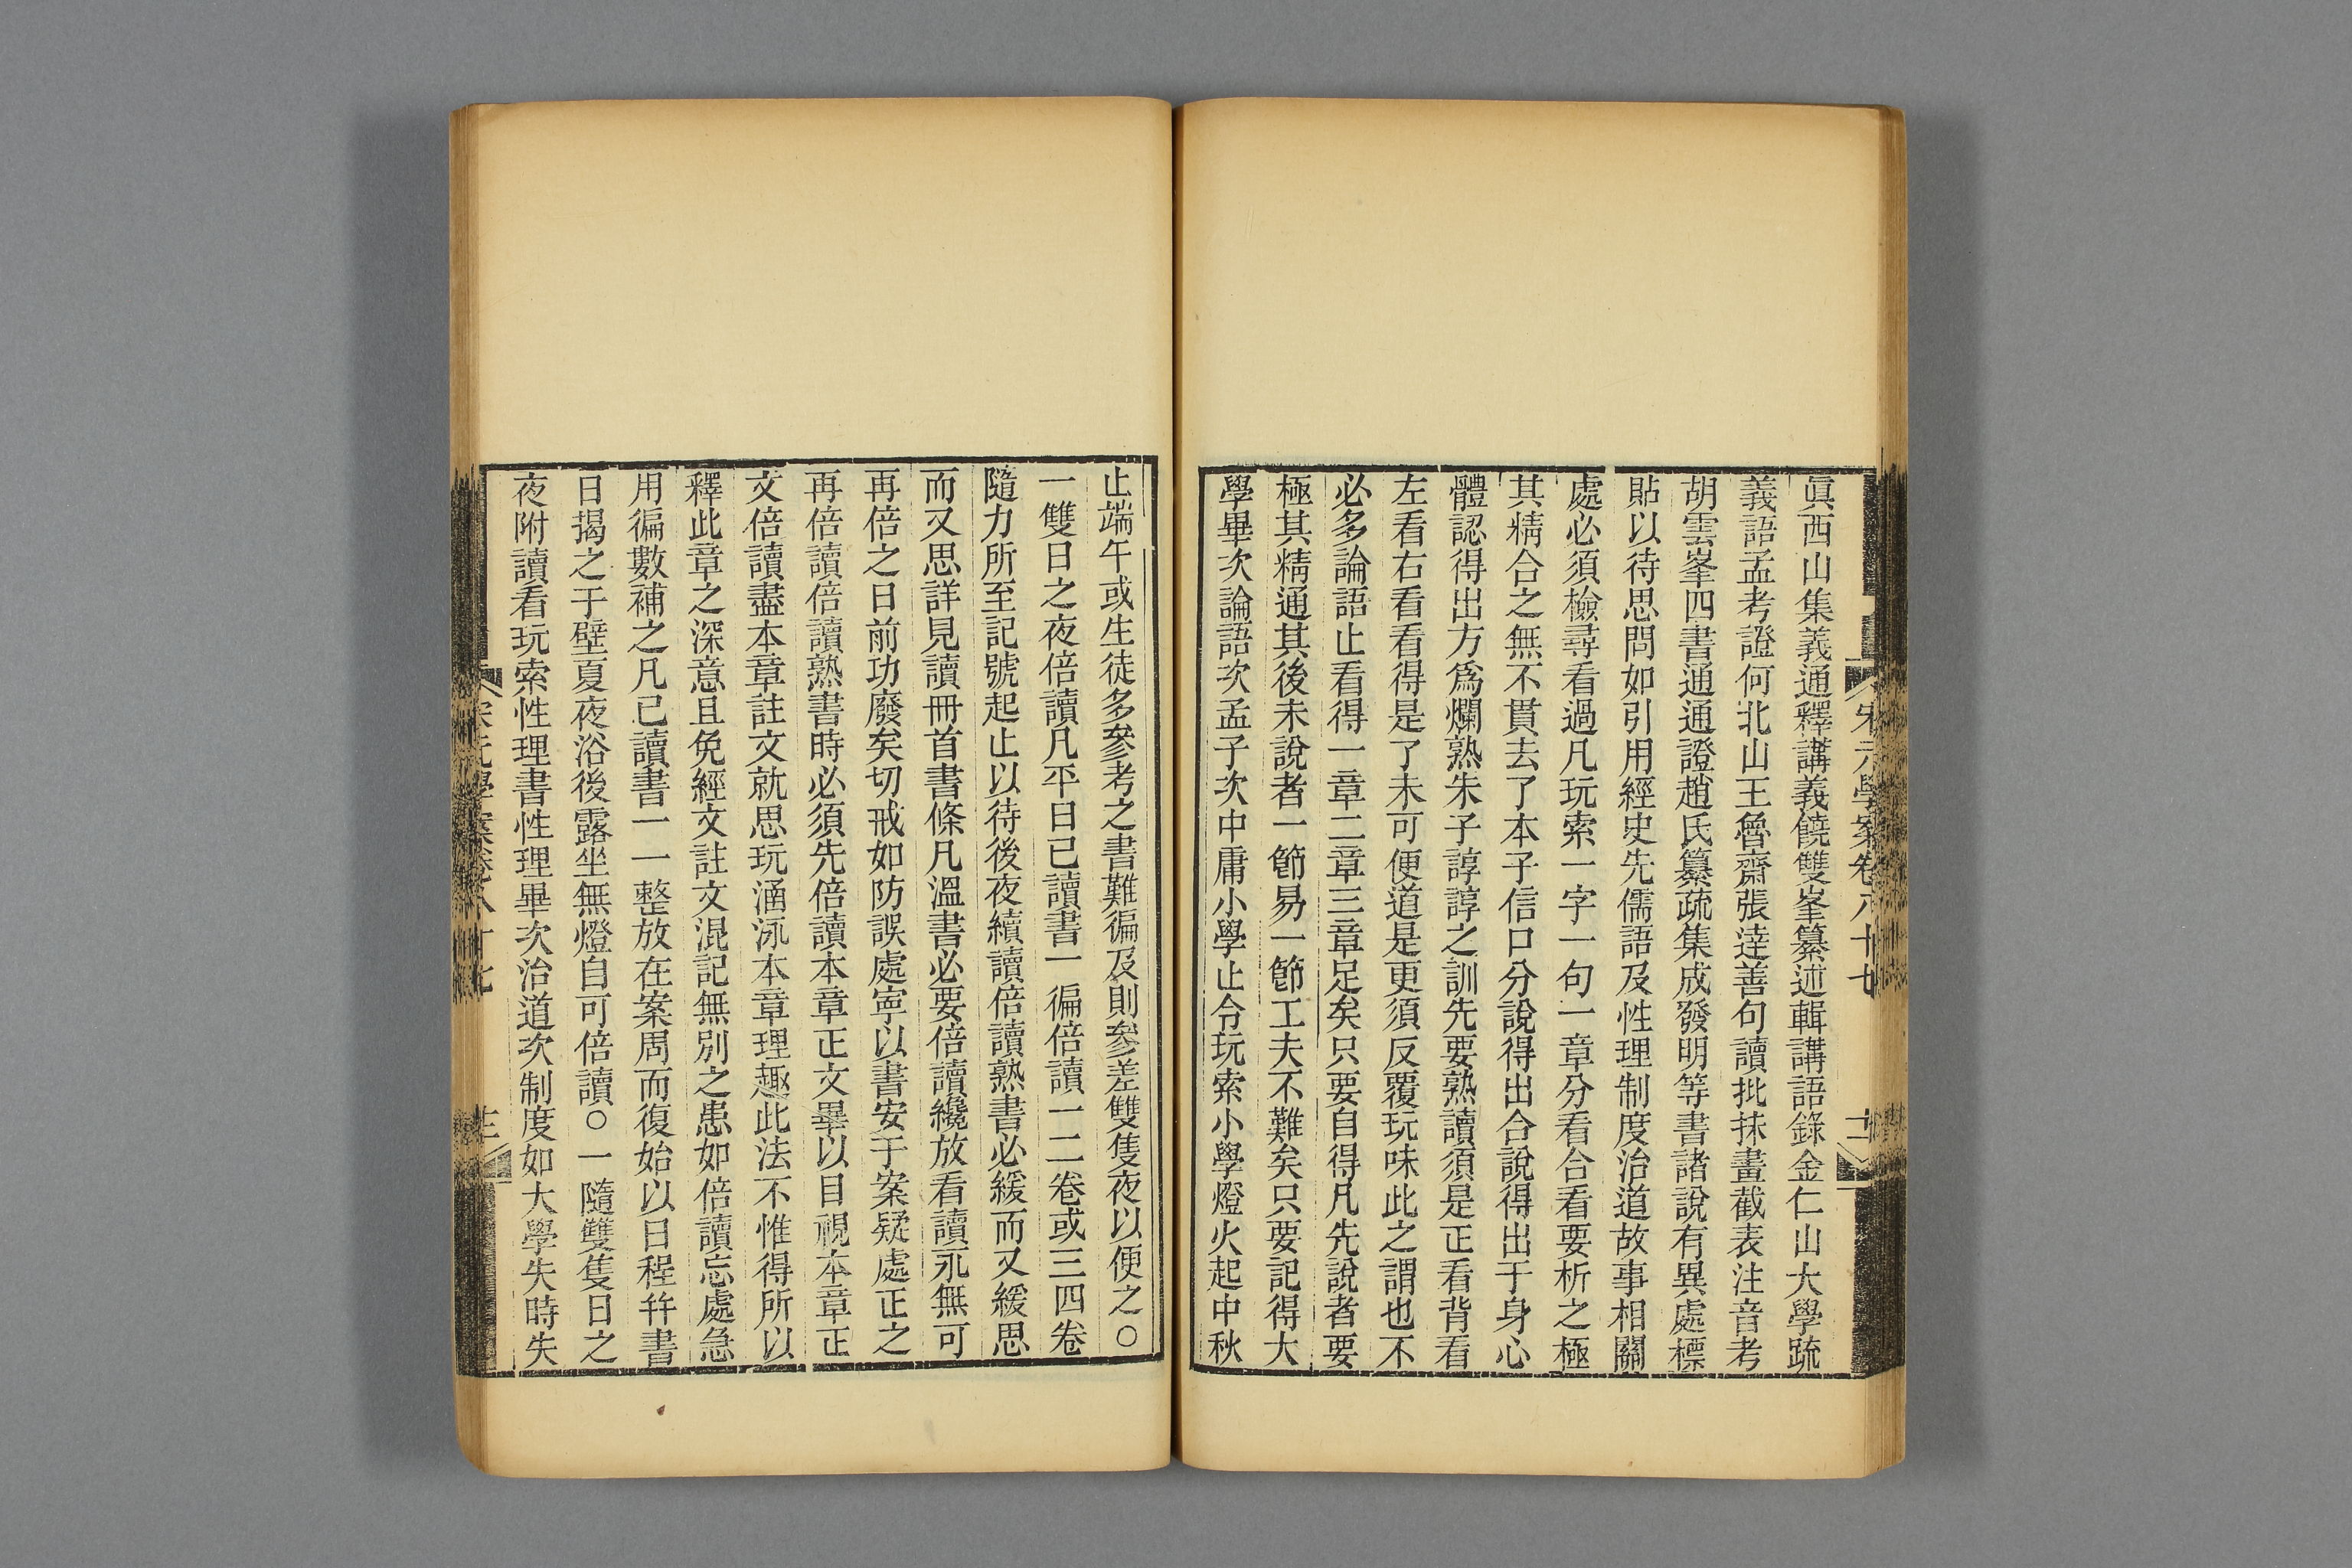 眞西山集義通釋講義饒雙峯纂述輯講語錄金仁山大學疏
義語孟考證何北山王魯齋張達善句讀批抹畫截表注音考
胡雲峯四書通通證趙氏纂疏集成發明等書諸說有異處標
貼以待思問如引用經史先儒語及性理制度治道故事相關
處必須檢尋看過凡玩索一字一句一章分看合看要析之極
其精合之無不貫去了本子信口分說得出合說得出于身心
體認得出方爲爛熟朱子諄諄之訓先要熟讀須是正看背看
左看右看看得是了未可便道是更須反覆玩味此之謂也不
必多論語止看得一章二章三章足矣只要自得凡先說者要
極其精通其後未說者一節易一節工夫不難矣只要記得大
學畢次論語次孟子次中庸小學止令玩索小學燈火起中秋
止端午或生徒多參考之書難徧及則參差雙隻夜以便之○
一雙日之夜倍讀凡平日已讀書一徧倍讀一二卷或三四卷
隨力所至記號起止以待後夜續讀倍讀熟書必緩而又緩思
而又思詳見讀冊首書條凡溫書必要倍讀纔放看讀永無可
再倍之日前功廢矣切戒如防誤處寧以書安于案疑處正之
再倍讀倍讀熟書時必須先倍讀本章正文畢以目視本章正
文倍讀盡本章註文就思玩涵泳本章理趣此法不惟得所以
釋此章之深意且免經文註文混記無別之患如倍讀忘處急
用徧數補之凡已讀書一一整放在案周而復始以日程幷書
日揭之于壁夏夜浴後露坐無燈自可倍讀○一隨雙隻日之
夜附讀看玩索性理書性理畢次治道次制度如大學失時失
宋元學案卷八十七